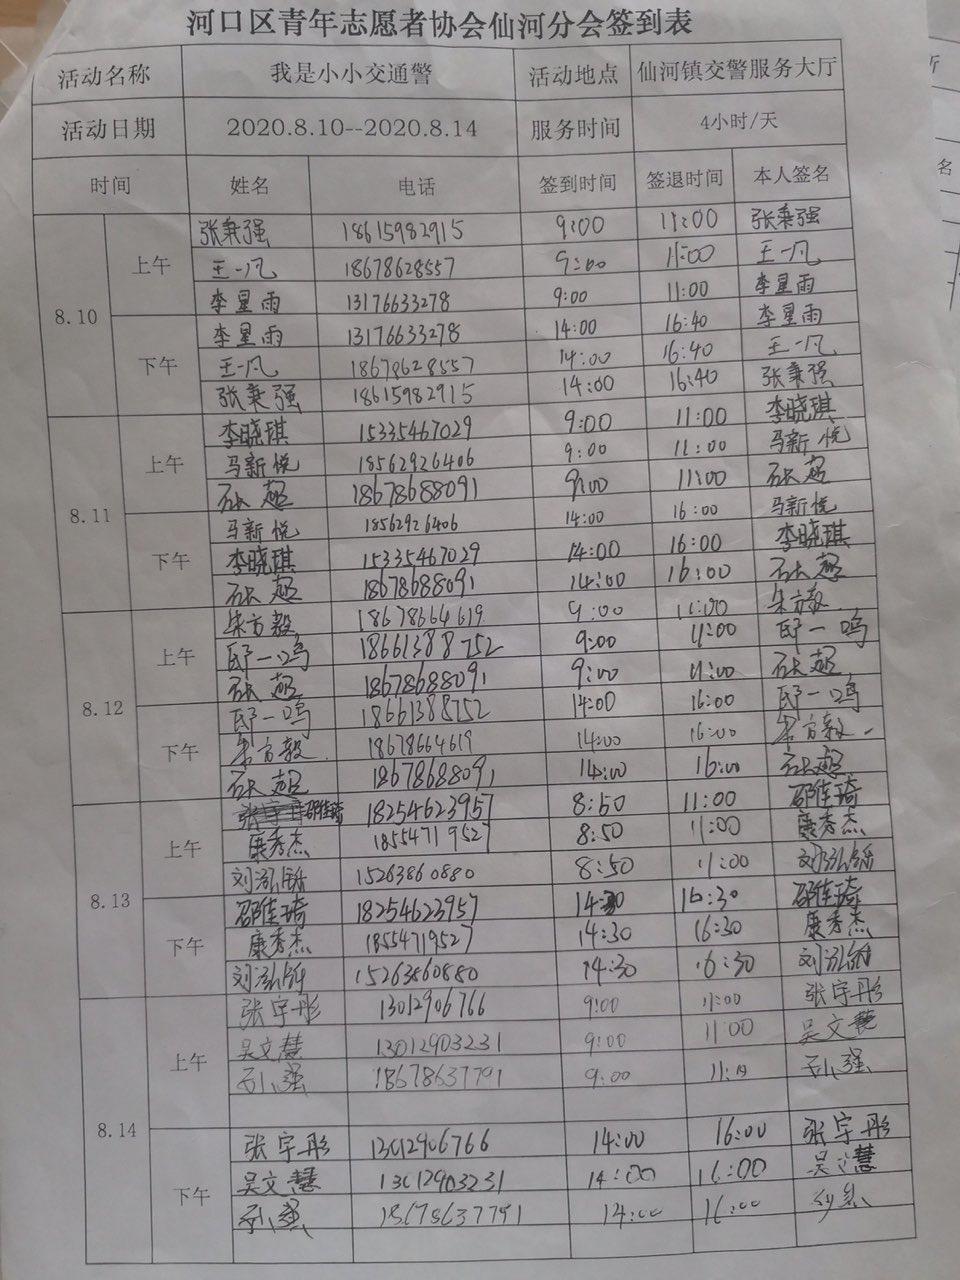 河口区青年志愿者协会仙河分会签到表
活动名称 我是小小交通警 活动地点 仙河镇交警服务大厅
活动日期 2020.8.10--2020.8.14 服务时间 4小时/天
时间 姓名 电话 签到时间 签退时间 本人签名
8.10 上午 张秉强 18615982915 9:00 11:00 张秉强
王一凡 18678628557 9:00 11:00 王一凡
李星雨 13176633278 9:00 11:00 李星雨
下午 李星雨 13176633278 14:00 16:40 李星雨
王一凡 18678628557 14:00 16:40 王一凡
张秉强 18615982915 14:00 16:40 张秉强
8.11 上午 李晓琪 15335467029 9:00 11:00 李晓琪
马新悦 18562926406 9:00 11:00 马新悦
石超 18678688091 9:00 11:00 石超
下午 马新悦 18562926406 14:00 16:00 马新悦
李晓琪 15335467029 14:00 16:00 李晓琪
石超 18678688091 14:00 16:00 石超
8.12 上午 朱方毅 18678664619 9:00 11:00 朱方毅
邸一鸣 18661388752 9:00 11:00 邸一鸣
石超 18678688091 9:00 11:00 石超
下午 邸一鸣 18661388752 14:00 16:00 邸一鸣
朱方毅 18678664619 14:00 16:00 朱方毅
石超 18678688091 14:00 16:00 石超
8.13 上午 邵佳琦 18254623957 8:50 11:00 邵佳琦
康秀杰 18554719527 8:50 11:00 康秀杰
刘泓 15263860880 8:50 11:00 刘泓
下午 邵佳琦 18254623957 14:30 16:30 邵佳琦
康秀杰 18554719527 14:30 16:30 康秀杰
刘泓 15263860880 14:30 16:30 刘泓
8.14 上午 张宇彤 13012906766 9:00 11:00 张宇彤
吴文慧 13012903231 9:00 11:00 吴文慧
孙强 18678637791 9:00 孙强
下午 张宇彤 13012906766 14:00 16:00 张宇彤
吴文慧 13012903231 14:00 16:00 吴文慧
孙强 18678637791 14:00 16:00